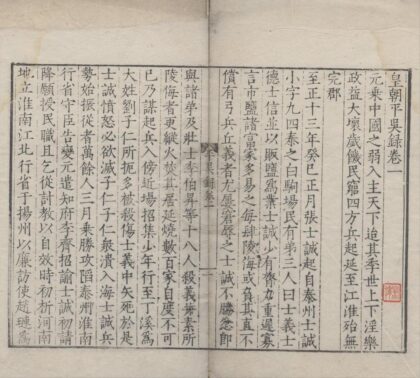 皇朝平吳錄卷一
元乘中國之弱入主天下迨其季世上下淫樂
政益大壞歲饑民竄四方兵起延至江淮殆無
完郡
至正十三年癸巳正月張士誠起自泰州士誠
小字九四泰之白駒場民有弟三人曰士義士
德士信並以販鹽爲業士誠少有膂力重遲寡
言市鹽諸富家多易之每肆陵侮或負其直不
償有弓兵丘義者尤屢窘辱之士誠不勝忿即
與諸弟及壯士李伯昇等十八人殺義并素所
陵侮者更縱火焚其居延燒數百家自度不可
已乃謀起兵入傍近場招集少年行至丁溪爲
大姓劉子仁所扼多被殺傷士義中矢死於是
士誠憤怒必欲滅子仁子仁衆潰入海士誠兵
勢始振從者萬餘人三月乘勝攻陷泰州淮南
行省守臣告變元遣知府李齊招諭士誠初請
降願授民職且乞從討教以自效時初析河南
地立淮南江北行省于揚州以廉訪使趙璉爲